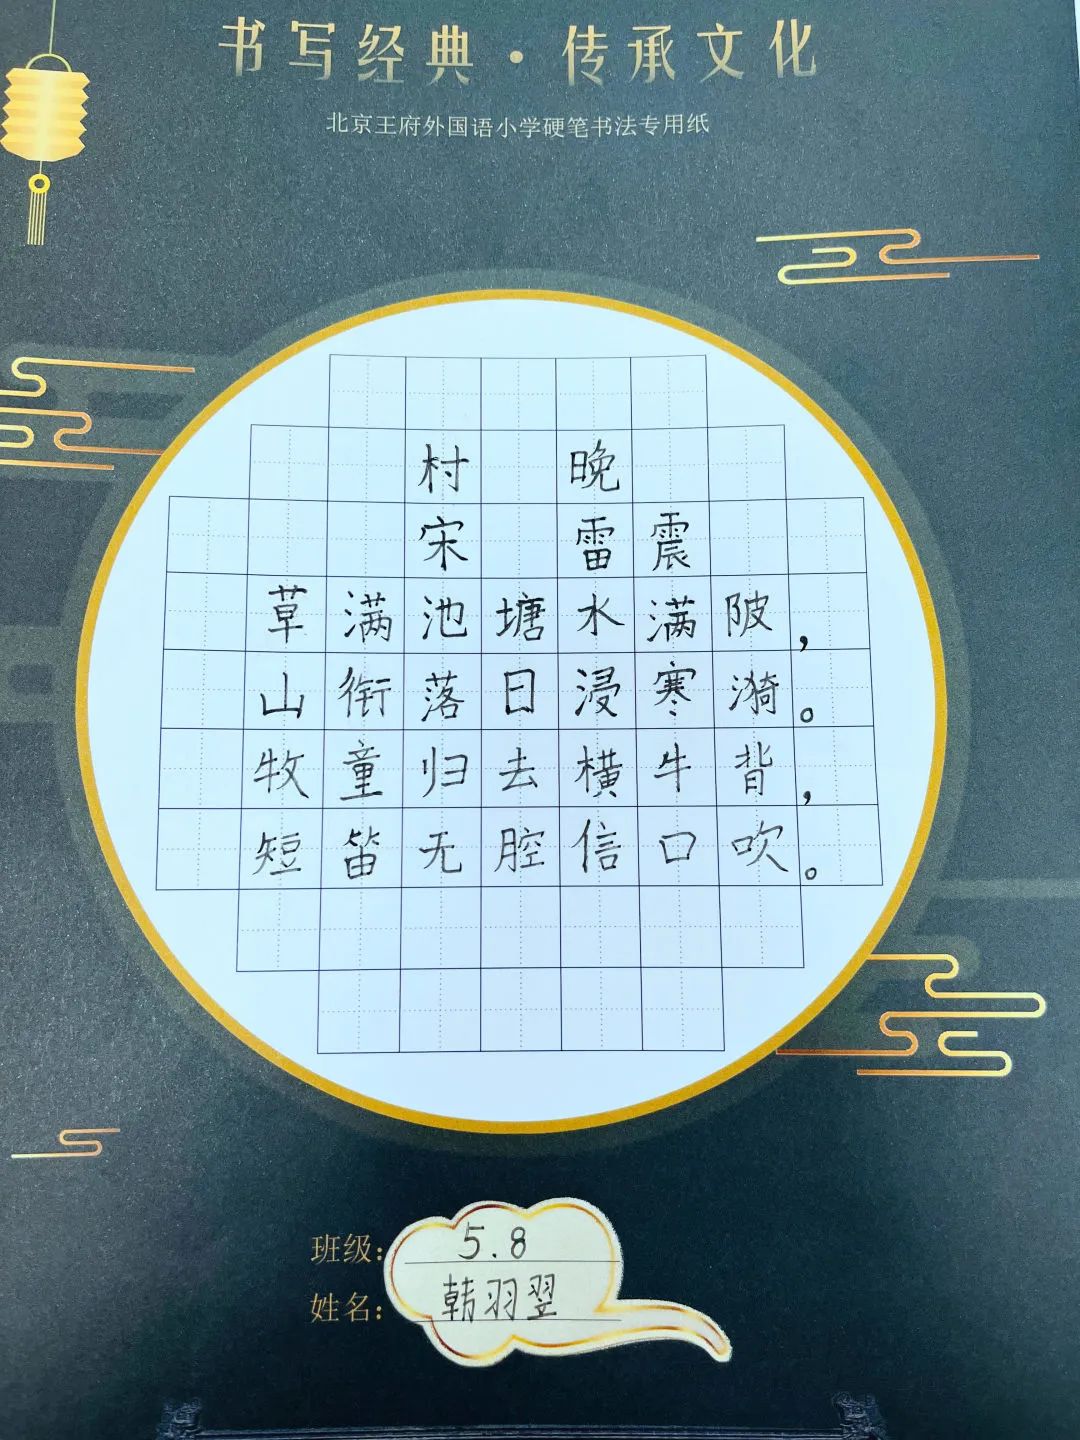 书写经典·传承文化
北京王府外国语小学硬笔书法专用纸
村 晚
宋 雷震
草满池塘水满陂，
山衔落日浸寒漪。
牧童归去横牛背，
短笛无腔信口吹。
班级：5.8
姓名：韩羽翌